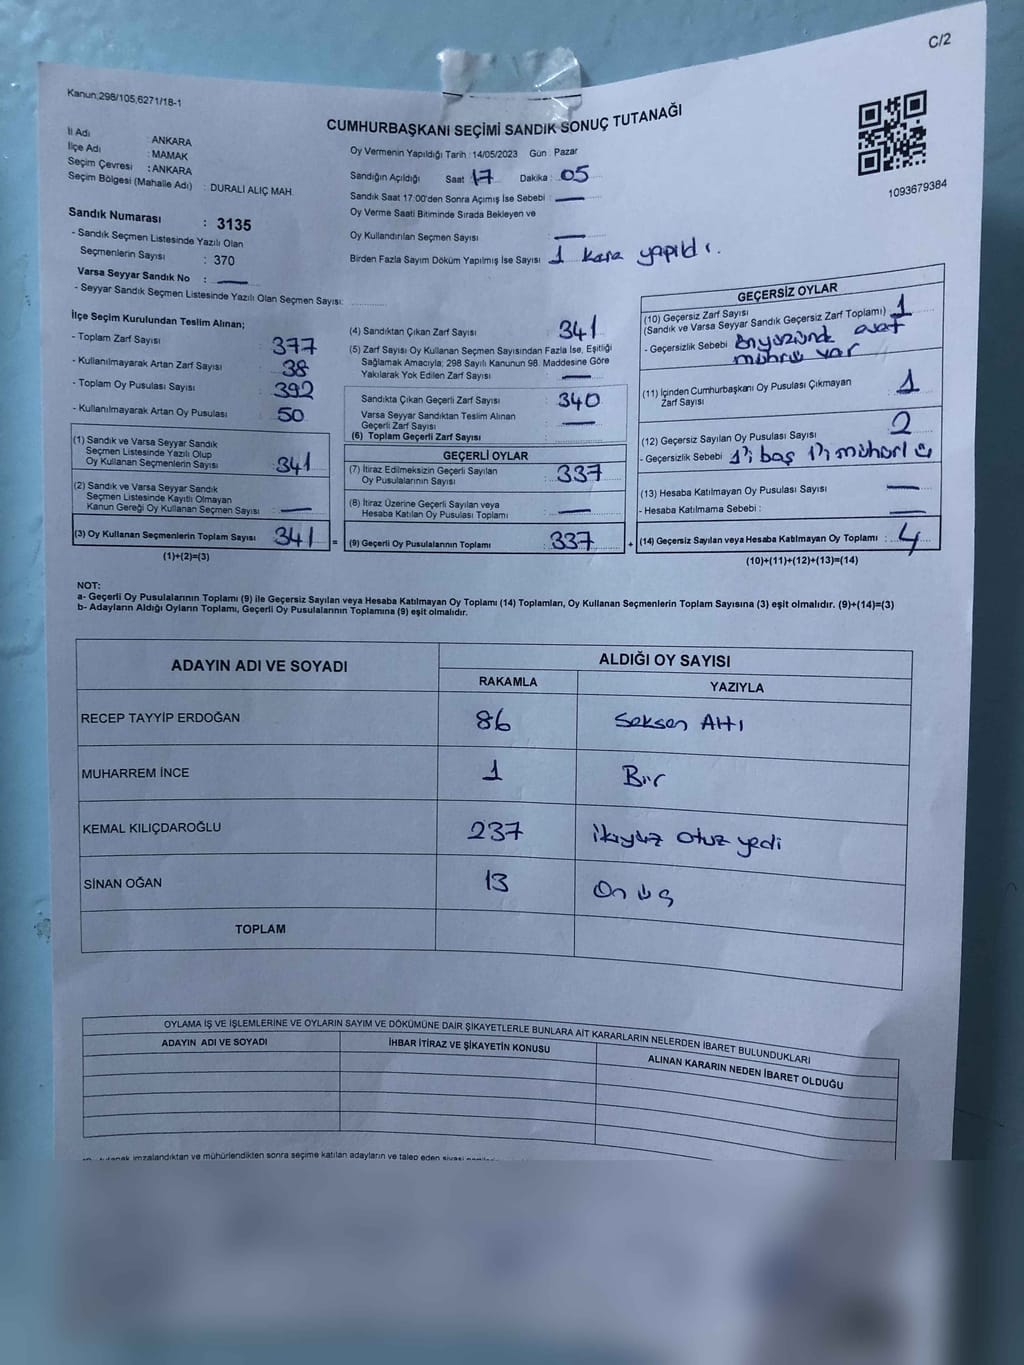 C/2
Kanun;298/105,6271/18-1
CUMHURBAŞKANI SEÇİMİ SANDIK SONUÇ TUTANAĞI
İl Adı : ANKARA
İlçe Adı : MAMAK
Seçim Çevresi : ANKARA
Seçim Bölgesi (Mahalle Adı) : DURALİ ALIÇ MAH.
Oy Vermenin Yapıldığı Tarih : 14/05/2023 Gün : Pazar
Sandığın Açıldığı Saat 17 Dakika : 05
Sandık Saat 17:00'den Sonra Açımış İse Sebebi : —
Oy Verme Saati Bitiminde Sırada Bekleyen ve
Oy Kullandırılan Seçmen Sayısı : —
Birden Fazla Sayım Döküm Yapılmış İse Sayısı : 1 kara yapıldı.
1093679384
Sandık Numarası : 3135
- Sandık Seçmen Listesinde Yazılı Olan
Seçmenlerin Sayısı : 370
Varsa Seyyar Sandık No : —
- Seyyar Sandık Seçmen Listesinde Yazılı Olan Seçmen Sayısı:
İlçe Seçim Kurulundan Teslim Alınan;
- Toplam Zarf Sayısı 377
- Kullanılmayarak Artan Zarf Sayısı 38
- Toplam Oy Pusulası Sayısı 392
- Kullanılmayarak Artan Oy Pusulası 50
(1) Sandık ve Varsa Seyyar Sandık
Seçmen Listesinde Yazılı Olup
Oy Kullanan Seçmenlerin Sayısı : 341
(2) Sandık ve Varsa Seyyar Sandık
Seçmen Listesinde Kayıtlı Olmayan
Kanun Gereği Oy Kullanan Seçmen Sayısı : —
(3) Oy Kullanan Seçmenlerin Toplam Sayısı 341 =
(1)+(2)=(3)
(4) Sandıktan Çıkan Zarf Sayısı : 341
(5) Zarf Sayısı Oy Kullanan Seçmen Sayısından Fazla İse, Eşitliği
Sağlamak Amacıyla; 298 Sayılı Kanunun 98. Maddesine Göre
Yakılarak Yok Edilen Zarf Sayısı : —
Sandıkta Çıkan Geçerli Zarf Sayısı : 340
Varsa Seyyar Sandıktan Teslim Alınan
Geçerli Zarf Sayısı : —
(6) Toplam Geçerli Zarf Sayısı :
GEÇERLİ OYLAR
(7) İtiraz Edilmeksizin Geçerli Sayılan
Oy Pusulalarının Sayısı : 337
(8) İtiraz Üzerine Geçerli Sayılan veya
Hesaba Katılan Oy Pusulası Toplamı : —
(9) Geçerli Oy Pusulalarının Toplamı : 337 +
GEÇERSİZ OYLAR
(10) Geçersiz Zarf Sayısı
(Sandık ve Varsa Seyyar Sandık Geçersiz Zarf Toplamı) : 1
- Geçersizlik Sebebi : önyüzünde
mührü var
(11) İçinden Cumhurbaşkanı Oy Pusulası Çıkmayan
Zarf Sayısı : 1
(12) Geçersiz Sayılan Oy Pusulası Sayısı : 2
- Geçersizlik Sebebi : 1'i baş 1'i mühürlü
(13) Hesaba Katılmayan Oy Pusulası Sayısı : —
- Hesaba Katılmama Sebebi : —
(14) Geçersiz Sayılan veya Hesaba Katılmayan Oy Toplamı : 4
(10)+(11)+(12)+(13)=(14)
NOT:
a- Geçerli Oy Pusulalarının Toplamı (9) ile Geçersiz Sayılan veya Hesaba Katılmayan Oy Toplamı (14) Toplamları, Oy Kullanan Seçmenlerin Toplam Sayısına (3) eşit olmalıdır. (9)+(14)=(3)
b- Adayların Aldığı Oyların Toplamı, Geçerli Oy Pusulalarının Toplamına (9) eşit olmalıdır.
ADAYIN ADI VE SOYADI
ALDIĞI OY SAYISI
RAKAMLA YAZIYLA
RECEP TAYYİP ERDOĞAN 86 Seksen Altı
MUHARREM İNCE 1 Bir
KEMAL KILIÇDAROĞLU 237 ikiyüz otuz yedi
SİNAN OĞAN 13 On üç
TOPLAM
OYLAMA İŞ VE İŞLEMLERİNE VE OYLARIN SAYIM VE DÖKÜMÜNE DAİR ŞİKAYETLERLE BUNLARA AİT KARARLARIN NELERDEN İBARET BULUNDUKLARI
ADAYIN ADI VE SOYADI İHBAR İTİRAZ VE ŞİKAYETİN KONUSU ALINAN KARARIN NEDEN İBARET OLDUĞU
tutanak imzalandıktan ve mühürlendikten sonra seçime katılan adayların ve talep eden